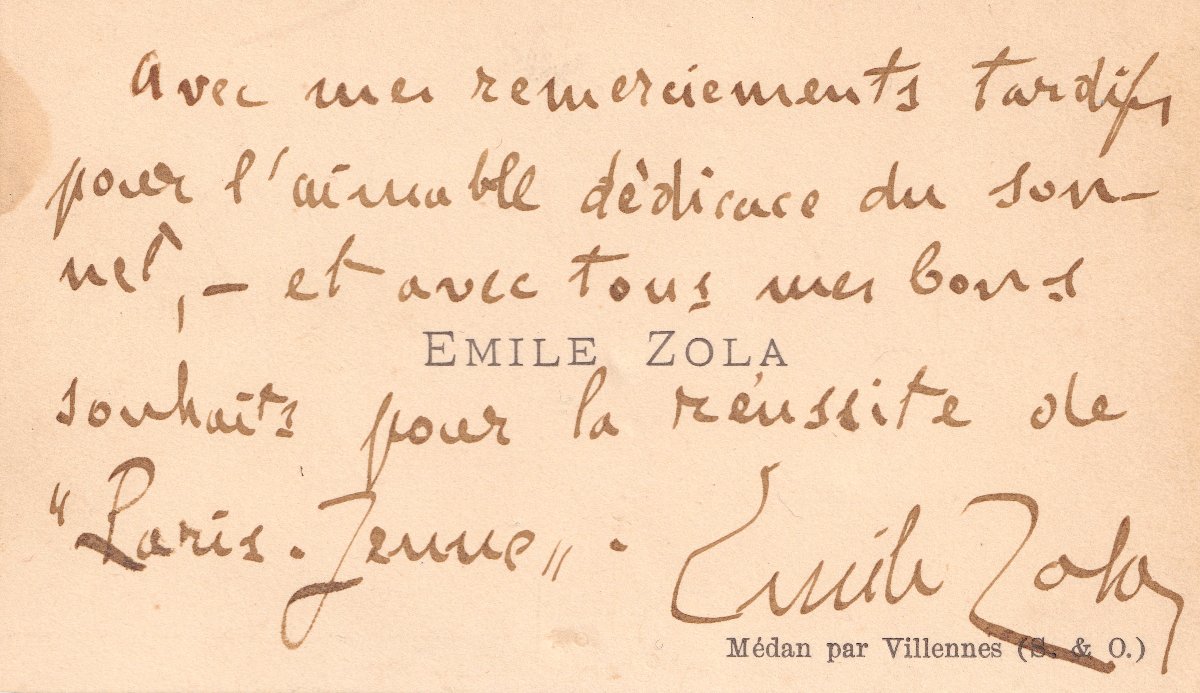 Avec mes remerciements tardifs
pour l'aimable dédicace du son-
net, – et avec tous mes bons
EMILE ZOLA
souhaits pour la réussite de
"Paris-Jeune".
Emile Zola
Médan par Villennes (S. & O.)